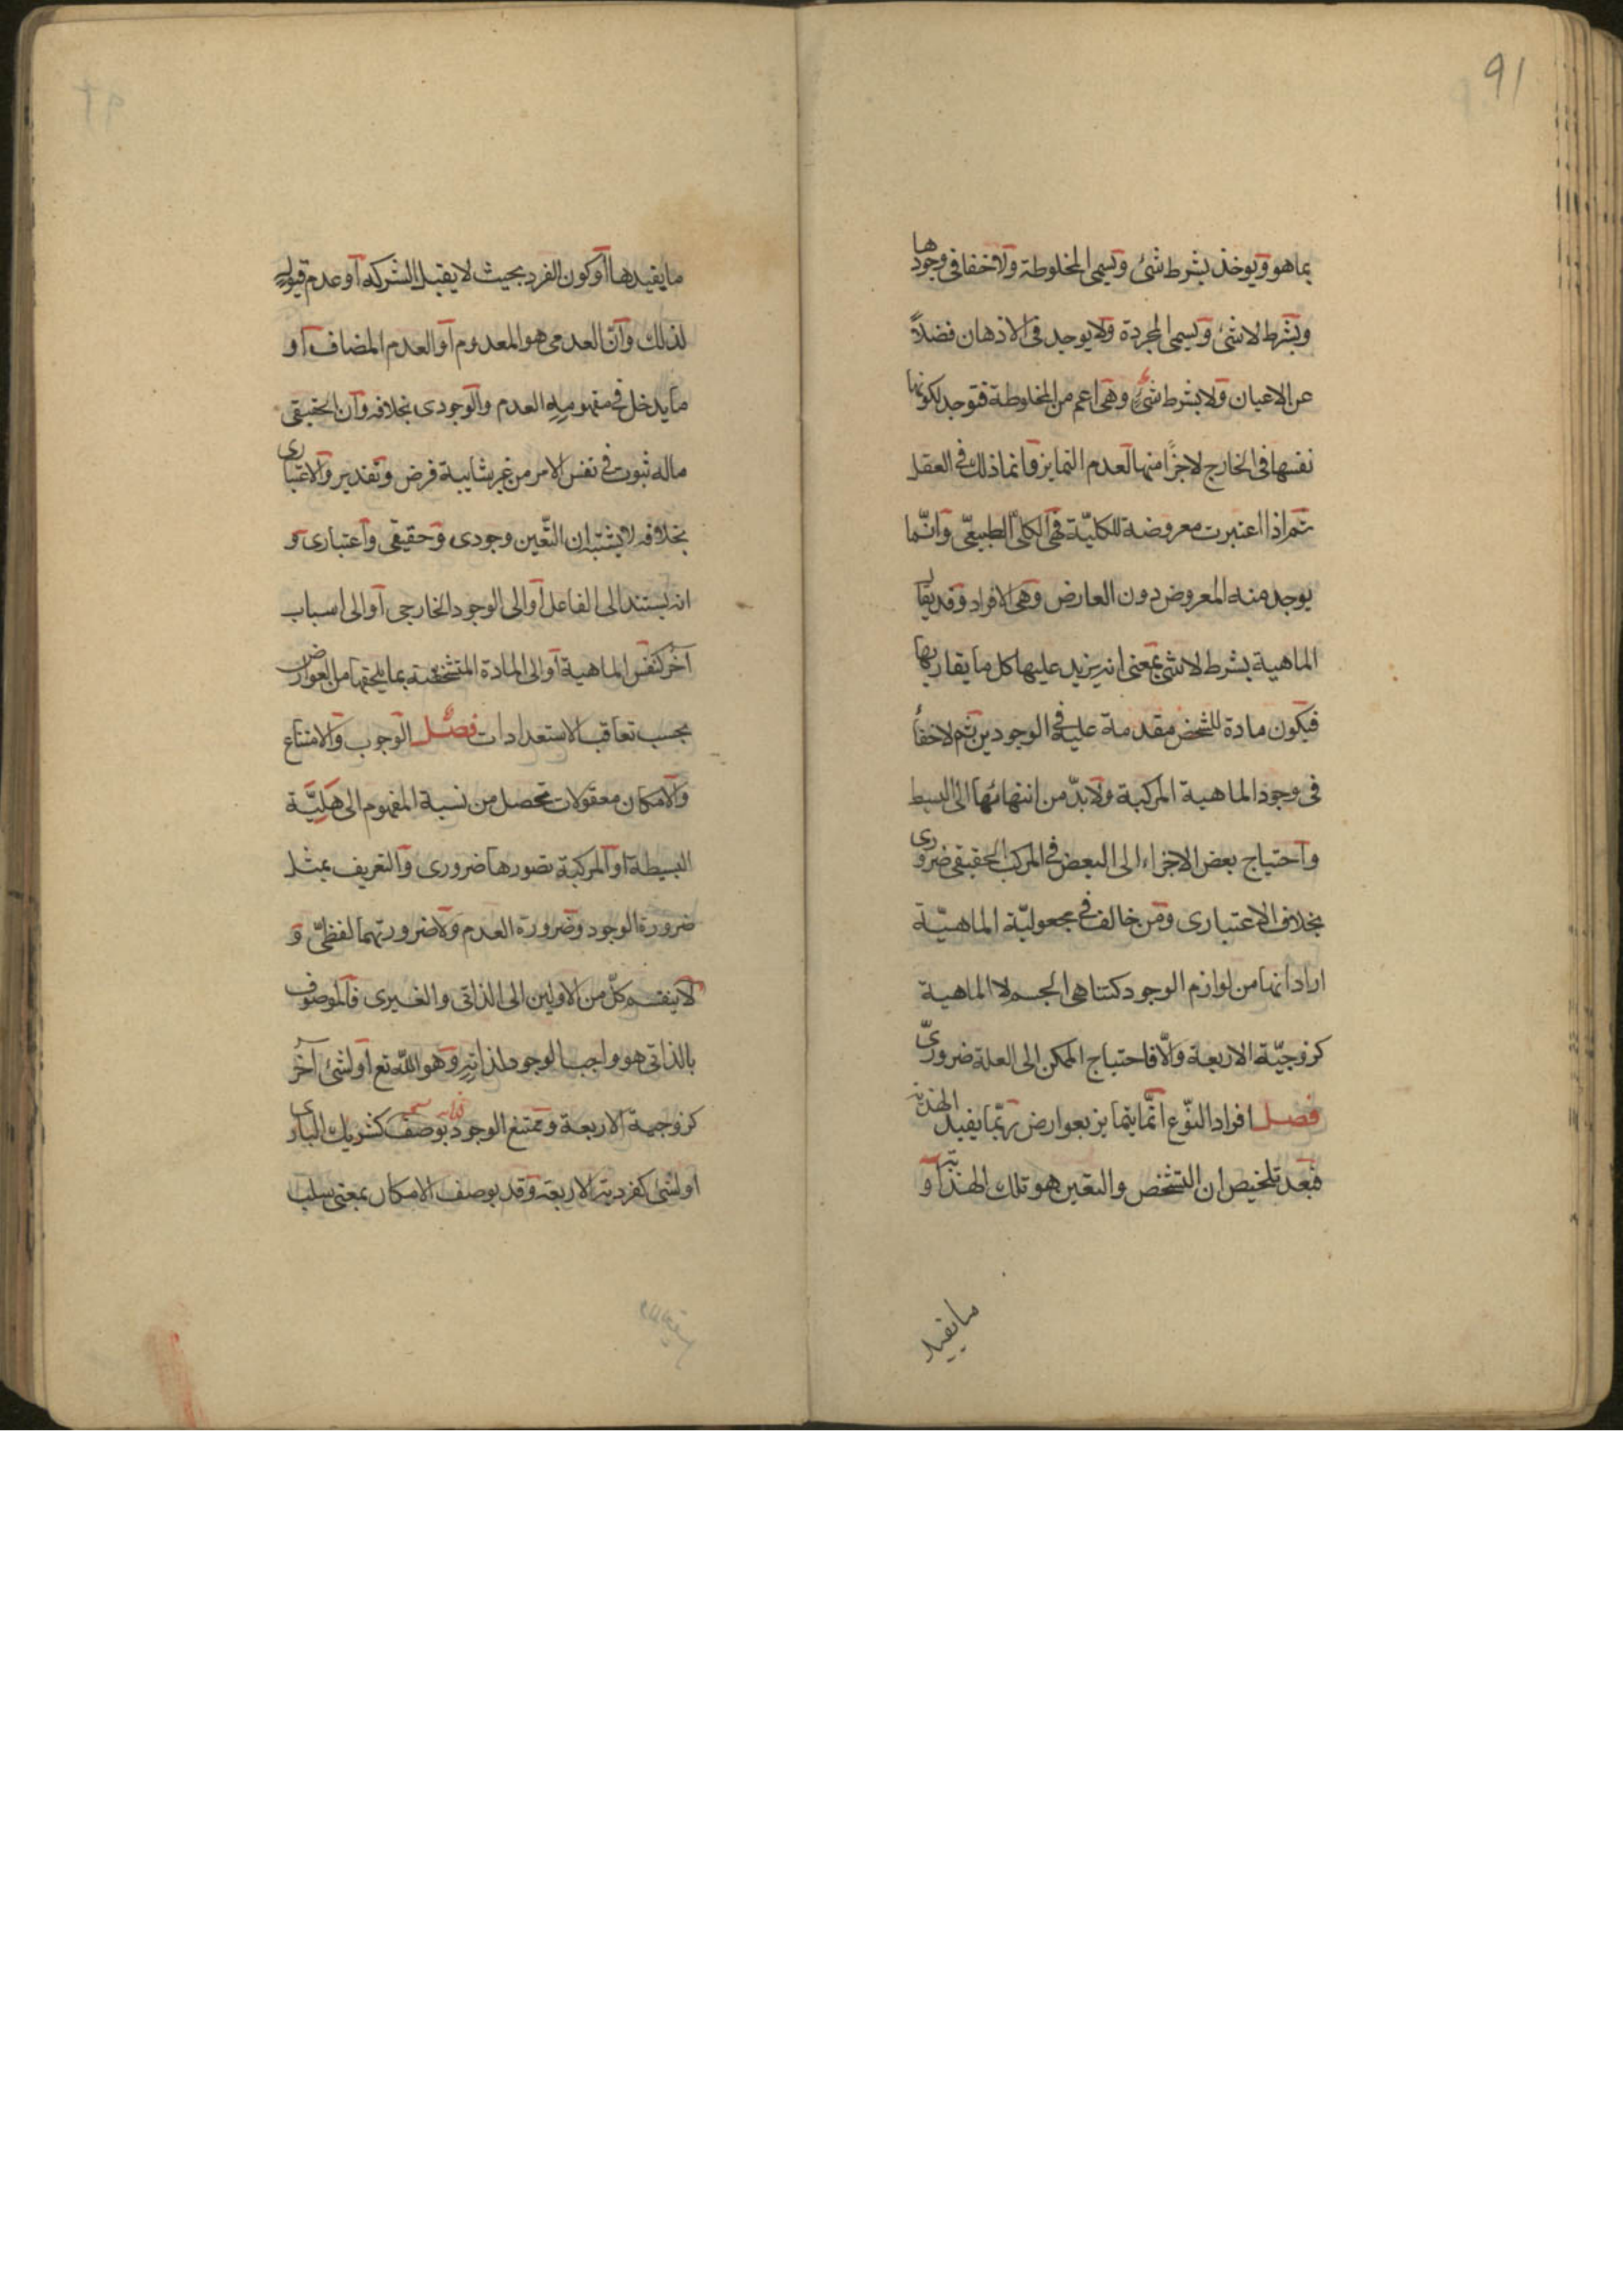 91
بما هو ويوخذ بشرط شئ ويسمى المخلوطة ولا خفا فى وجودها
وبشرط لا شئ ويسمى المجردة ولا يوجد فى الاذهان فضلاً
عن الاعيان ولا بشرط شئ وهى اعم من المخلوطة فتوجد لكونها
نفسها فى الخارج لا جزءًا منها لعدم التمايز وانما ذلك فى العقل
ثم اذا اعتبرت معروضة للكليّة فهى الكلى الطبيعىّ وانّما
يوجد منه المعروض دون العارض وهى الافراد وقد يقال
الماهية بشرط لا شئ بمعنى انه يزيد عليها كل ما يقاربها
فيكون مادة للشخص متقدمة عليه فى الوجودين ثم لا خفأ
فى وجود الماهية المركبة ولا بدّ من انتهائها الى البسيط
واحتياج بعض الاجزاء الى البعض فى المركب الحقيقى ضرورى
بخلاف الاعتبارى ومن خالف فى مجعوليّة الماهيّة
اراد انها من لوازم الوجود كتناهى الجسم لا الماهية
كزوجيّة الاربعة والّا فاحتياج الممكن الى العلة ضرورىّ
فصل افراد النّوع انّما يتمايز بعوارض ربّما يفيد الهذية
فبعد تلخيص ان التشخص والتعين هو تلك الهذية او
ما يفيد
ما يفيدها أو كون الفرد بحيث لا يقبل الشركه او عدم قبوله
لذلك وانّ العدمى هو المعدوم او العدم المضاف او
ما يدخل فى مفهومه العدم والوجودى بخلافه وان الحقيقى
ماله ثبوت فى نفس الامر من غير شايبة فرض وتقدير والاعتبارى
بخلافه لا يشتبه ان التّعين وجودى وحقيقى واعتبارى و
انه يستند الى الفاعل او الى الوجود الخارجى او الى اسباب
آخر كنفس الماهية او الى المادة المتشخصة بما يلحقها من العوارض
بحسب تعاقب الاستعدادات فصل الوجوب والامتناع
والامكان معقولات تحصل من نسبة المفهوم الى هليّة
البسيطة او المركبة تصورها ضرورى والتعريف بمثل
ضرورة الوجود وضرورة العدم ولا ضرورتهما لفظىّ و
لا ينقسم كلّ من الاولين الى الذاتى والغيرى فالموصوف
بالذاتى هو واجب الوجود لذاته وهو اللّه تع او لشئ آخر
كزوجية الاربعة وممتنع الوجود بوصف كشريك البارى
او لشئ كفردية الاربعة وقد يوصف الامكان بمعنى سلب